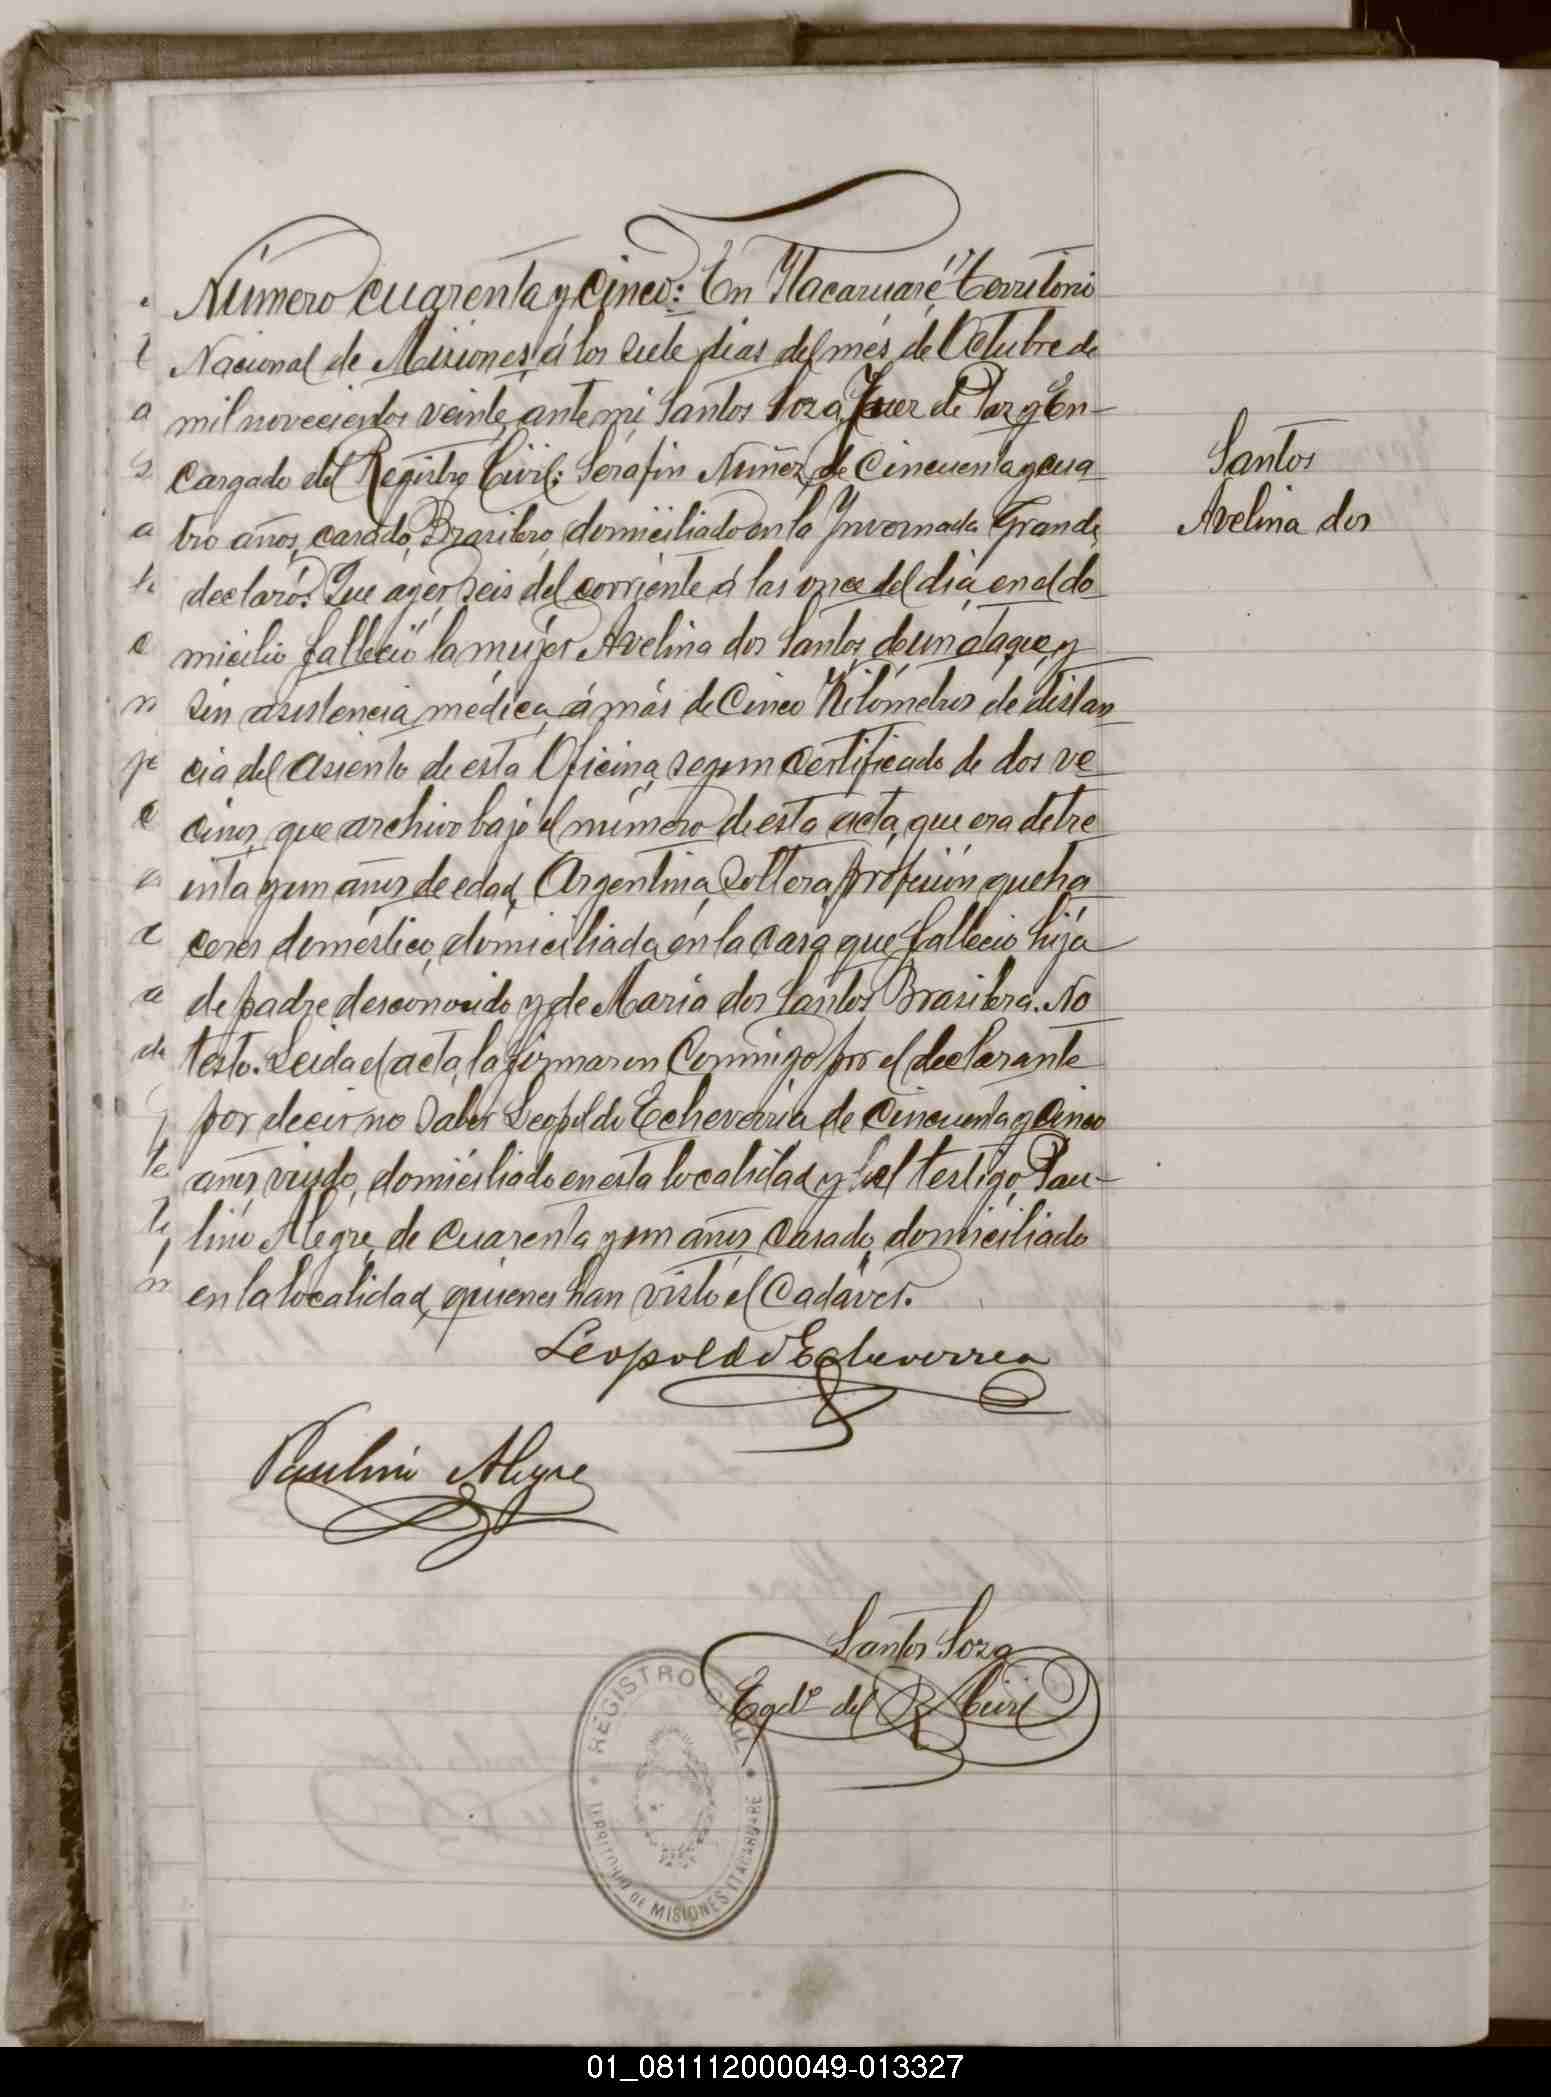 Número cuarenta y cinco: En Itacaruaré Territorio
Nacional de Misiones, á los siete dias del més de Octubre de
mil novecientos veinte, ante mi Santos Soza, Juez de Paz y En-
cargado del Registro Civil: Serafin Nuñez, de Cincuenta y cua
tro años, casado, Brasilero, domiciliado en la Invernada Grande,
declaró: Que ayer seis del corriente á las once del dia, en el do
micilio falleció la mujer Avelina dos Santos, de un ataque, y
sin asistencia médica, á más de Cinco Kilómetros de distan
cia del asiento de esta Oficina, segun certificado de dos ve
cinos, que archivo bajo el número de esta acta, que era de tre
inta y un años de edad, Argentina, Soltera, profesión queha
ceres doméstico, domiciliada en la casa que fallecio hija
de padre desconocido y de Maria dos Santos Brasilera. No
testo. Leida el acta, la firmaron Conmigo, por el declarante
por decir no saber Leopoldo Echeverria de Cincuenta y Cinco
años, viudo, domiciliado en esta localidad, y el testigo, Pau-
lino Alegre, de cuarenta y un años, casado, domiciliado
en la localidad, quienes han visto el Cadáver.
Santos
Avelina dos
Leopoldo Echeverrea
Paulino Alegre
Santos Soza
Egdo. del R. Civil
REGISTRO CIVIL
TERRITORIO DE MISIONES ITACARUARE
01_081112000049-013327